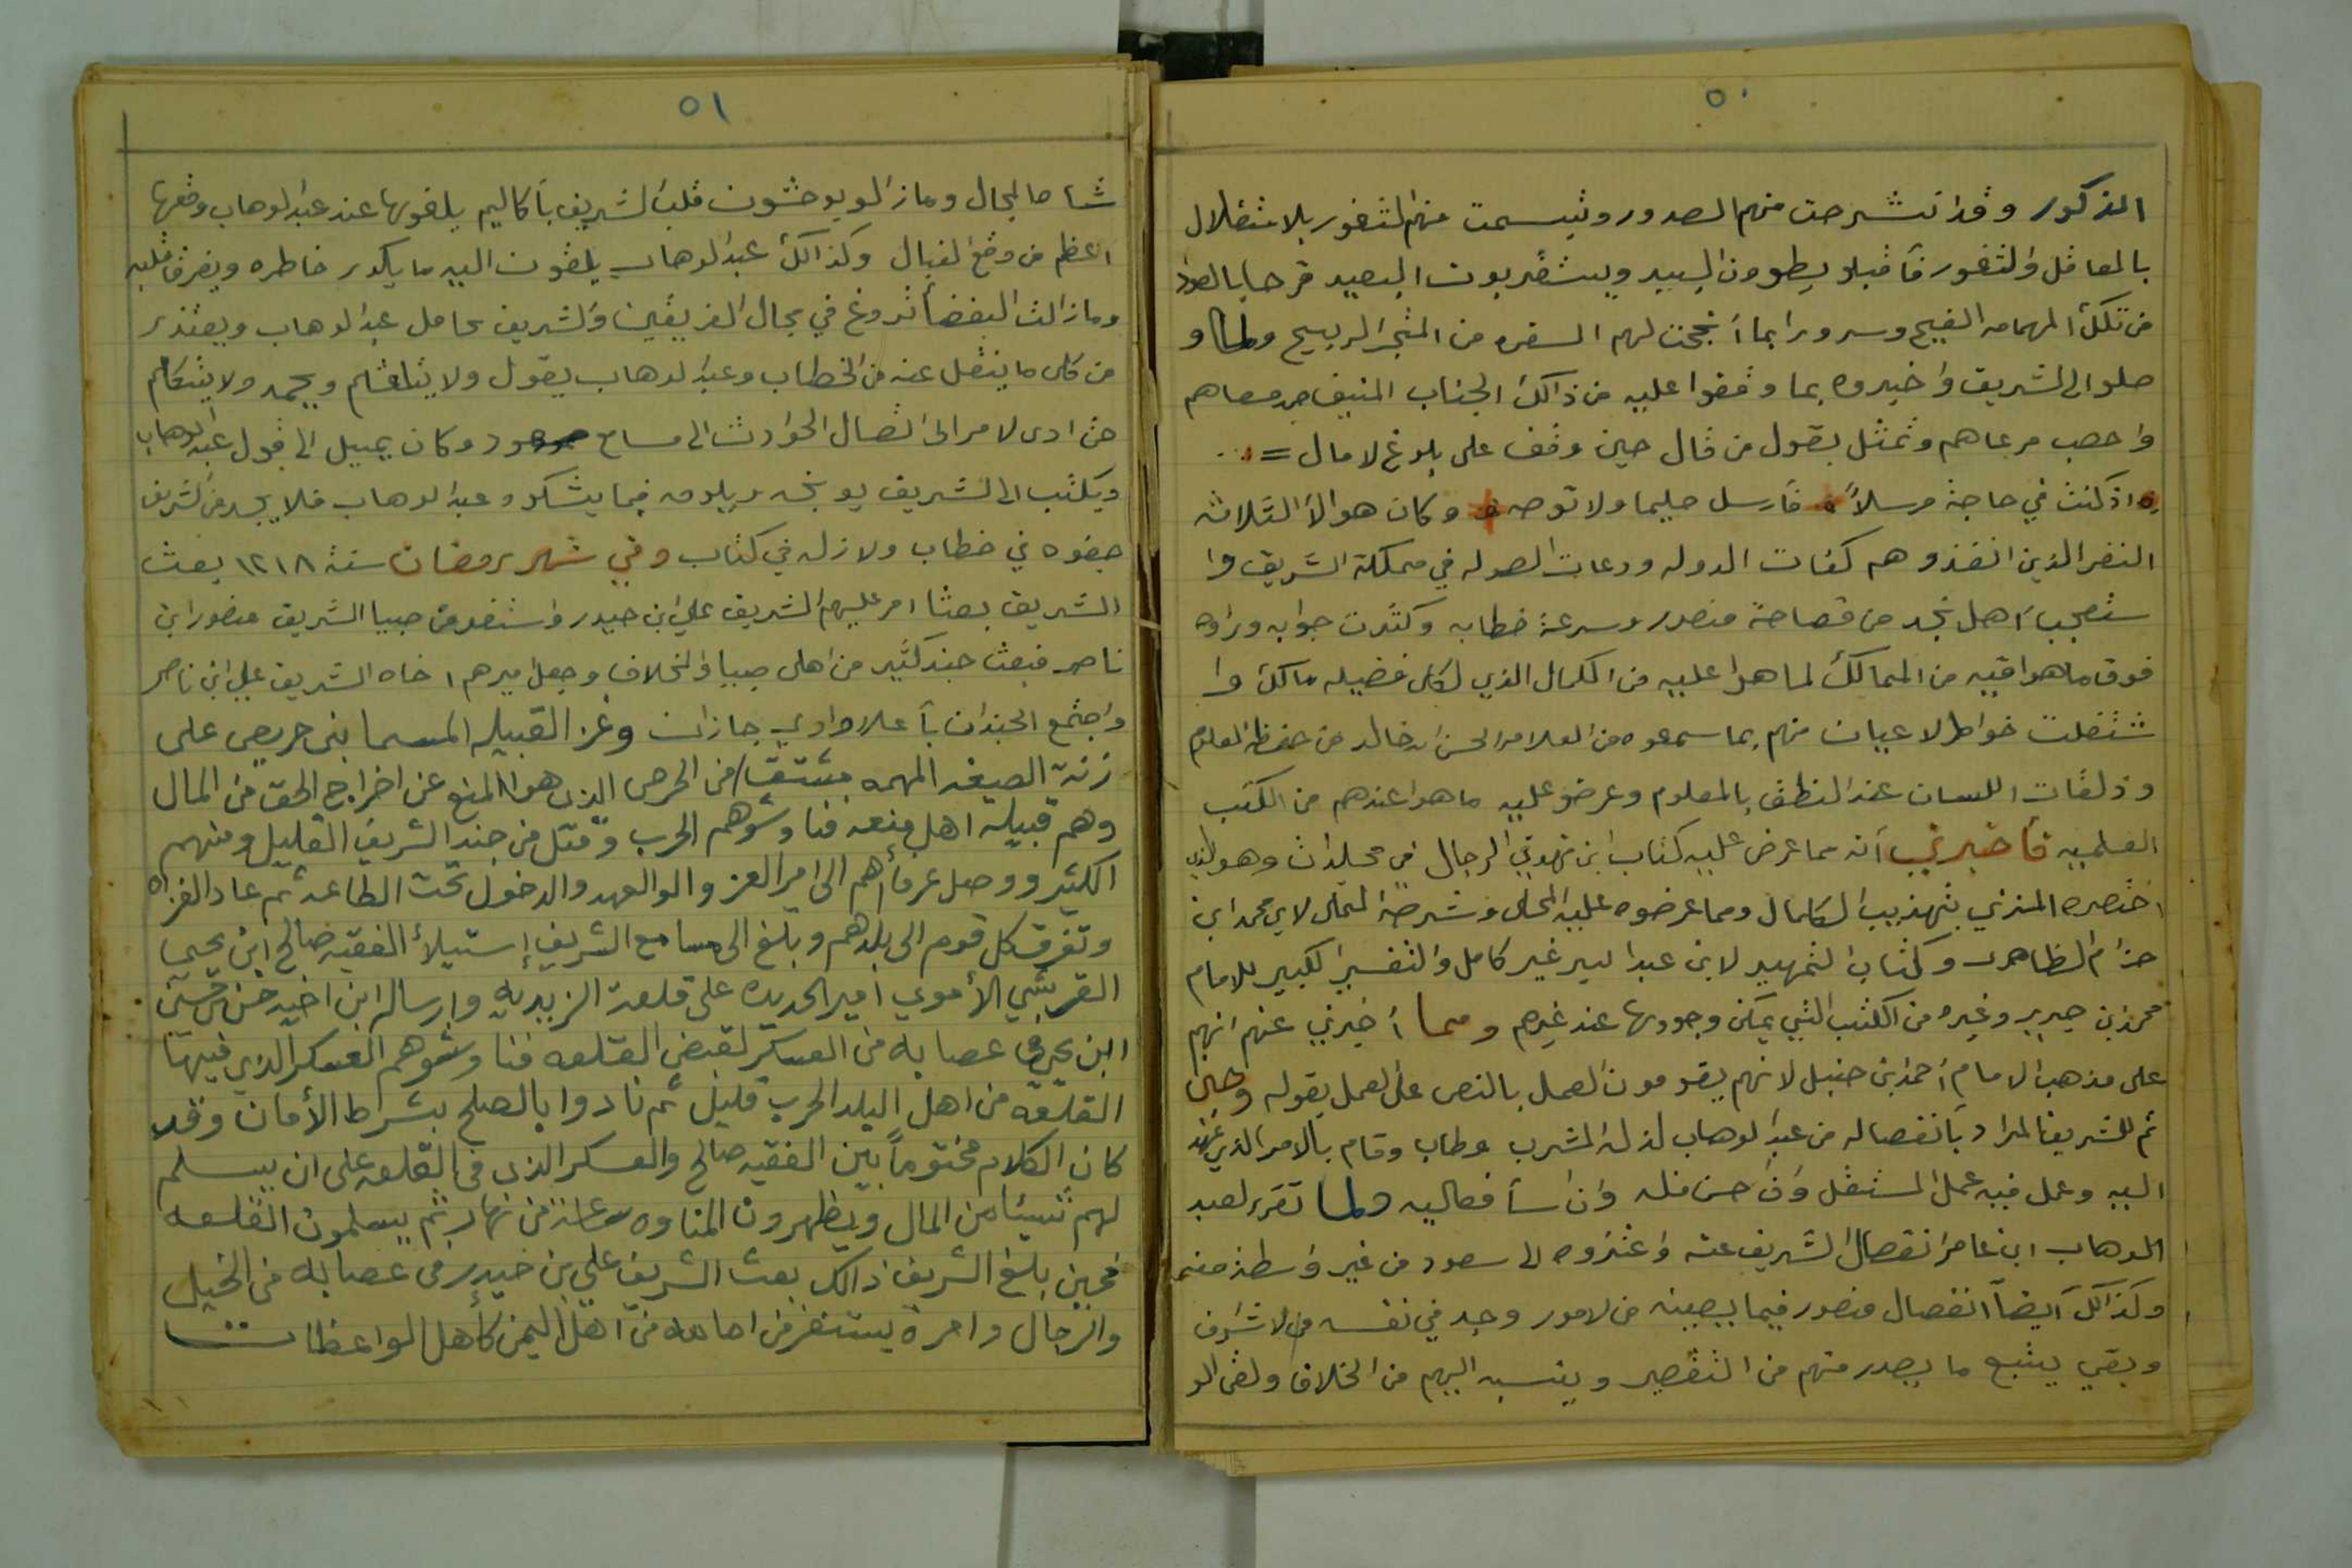 ٥٠
الذكور وقد انشرحت منهم الصدور وتبسمت منهم الثغور بلا ستقلال
بالمعاقل والثغور فأقبلو يطوون البيد ويستقربون البعيد فرحا بالعود
من تلك المهامه الفيح وسرورا بما أنجحت لهم السفره من المتجر الربيح ولما و
صلو الى الشريف واخبروه بما وقفوا عليه من ذالك الجناب المنيف حمد مسعاهم
واخصب مرعاهم وتمثل بقول من قال حين وقف على بلوغ لامال =
اذ كنت في حاجة مرسلاً فأرسل حليما ولا توصه وكان هوالأ الثلاثه
النفر الذين انفذو هم كفات الدوله ودعات الصوله في مملكة الشريف وا
ستعجب أهل نجد من فصاحة منصور وسرعة خطابه وكثرت جوابه وراوه
فوق ما هو افيه من الممالك لما هوا عليه من الكمال الذي لكل فضيله مالك وا
شتغلت خواطر لاعيان منهم بما سمعوه من العلامه الحسن ابن خالد من حفظ العلوم
وذلقات اللسان عند النطق بالمعلوم وعرضو عليه ما هوا عندهم من الكتب
العلميه فأخبرني أنه مما عرض عليه كتاب ابن في الرجال في مجلدات وهو الذي
اختصره المنذري بتهذيب الكمال ومما عرضوه عليه المحلى وشرحه لابي محمد ابن
حزام الظاهري وكتاب التمهيد لابن عبد البر غير كامل والتفسير الكبير للامام
محمد بن جرير وغيره من الكتب التي يمكن وجودها عند غيرهم ومما أخبرني عنهم انهم
على مذهب الامام أحمد ابن حنبل لانهم يقومون العمل بالنص على العمل بقوله وحين
تم للشريف المراد بأنفصاله من عبد الوهاب لذ له المشرب وطاب وقام بالامر الذي عهد
اليه وعمل فيه عمل المستقل وان احسن فله وان اسأ فعاليه ولما تقرر لعبد
الوهاب ابن عامر انفصال الشريف عنه واعتزوه الى سعود من غير واسطة منه
وكذالك أيضاً انفصال منصور فيما بصبيه من لامور وجد في نفسه من لاشراف
وبقي يتبع ما يصدر منهم من التقصير وينسبه اليهم من الخلاف ولقى الو
٥١
شا صا لمجال وما زالو يوحشون قلب الشريف بأكاليم يلقونها عند عبد الوهاب وقعها
اعظم من وقع النبال وكذالك عبد الوهاب يلقون اليه ما يكدر خاطره ويفرق قلبه
وما زالت البغضأ تروغ في مجال الفريقين والشريف يحامل عبد الوهاب ويعتذر
من كلى ما ينقل عنه من الخطاب وعبد الوهاب يقول ولا يتلعثم ويحمد ولا يتكلم
حتى ادى لامر الى اتصال الحوادث الى مسامع سعود وكان يميل الى قول عبد الوهاب
ويكتب الى الشريف يوبخه ويلومه فيما يشكوه عبد الوهاب فلا يجد من الشريف
جفوه في خطاب ولا زله في كتاب وفي شهر رمضان سنة ١٢١٨ بعث
الشريف بعثا امر عليهم الشريف علي ابن حيدر واستنفر من صبيا الشريف منصور ابن
ناصر فبعث جند كثير من اهل صبيا والمخلاف وجعل اميرهم اخاه الشريف علي ابن ناصر
واجتمع الجندان بأعلا وادي جازان وغز القبيله المسما بني حريص على
زنة الصيغه المهمه مشتق من الحرص الذي هوا المنع عن اخراج الحق من المال
وهم قبيله اهل منعه فناوشوهم الحرب وقتل من جند الشريف القليل ومنهم
الكثير ووصل عرفأهم الى امير الغز والو العهد والدخول تحت الطاعه ثم عاد الغزاه
وتفرق كل قوم الى بلدهم وبلغ الى مسامع الشريف إستيلأ الفقيه صالح ابن يحيى
القرشي الأموي امير الحديده على قلعة الزيديه وارساله ابن اخيه حسن بن حسين
ابن يحيى في عصابه من العسكر لقبض القلعه فناوشوهم العسكر الذي فيها
القلعه من اهل البلد الحرب قليل ثم نادوا بالصلح بشراط الأمان وقد
كان الكلام مختوماً بين الفقيه صالح والعسكر الذي في القلعه على ان يسلم
لهم شيئا من المال ويظهرون المناوه ساعة من نهار ثم يسلمون القلعه
فحين بلغ الشريف ذالك بعث الشريف علي بن حيدر في عصابه من الخيل
والرجال وامرة يستنفر من امامه من أهل اليمن كأهل الواعظات